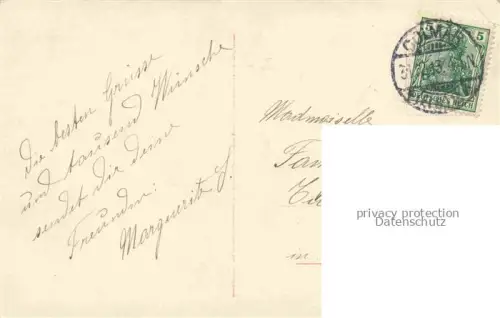 Die besten Grüsse
und tausend Wünsche
sendet dir deine
Freundin:
Marguerite S.
COLMAR
5
DEUTSCHES REICH
Mademoiselle
in
privacy protection
Datenschutz